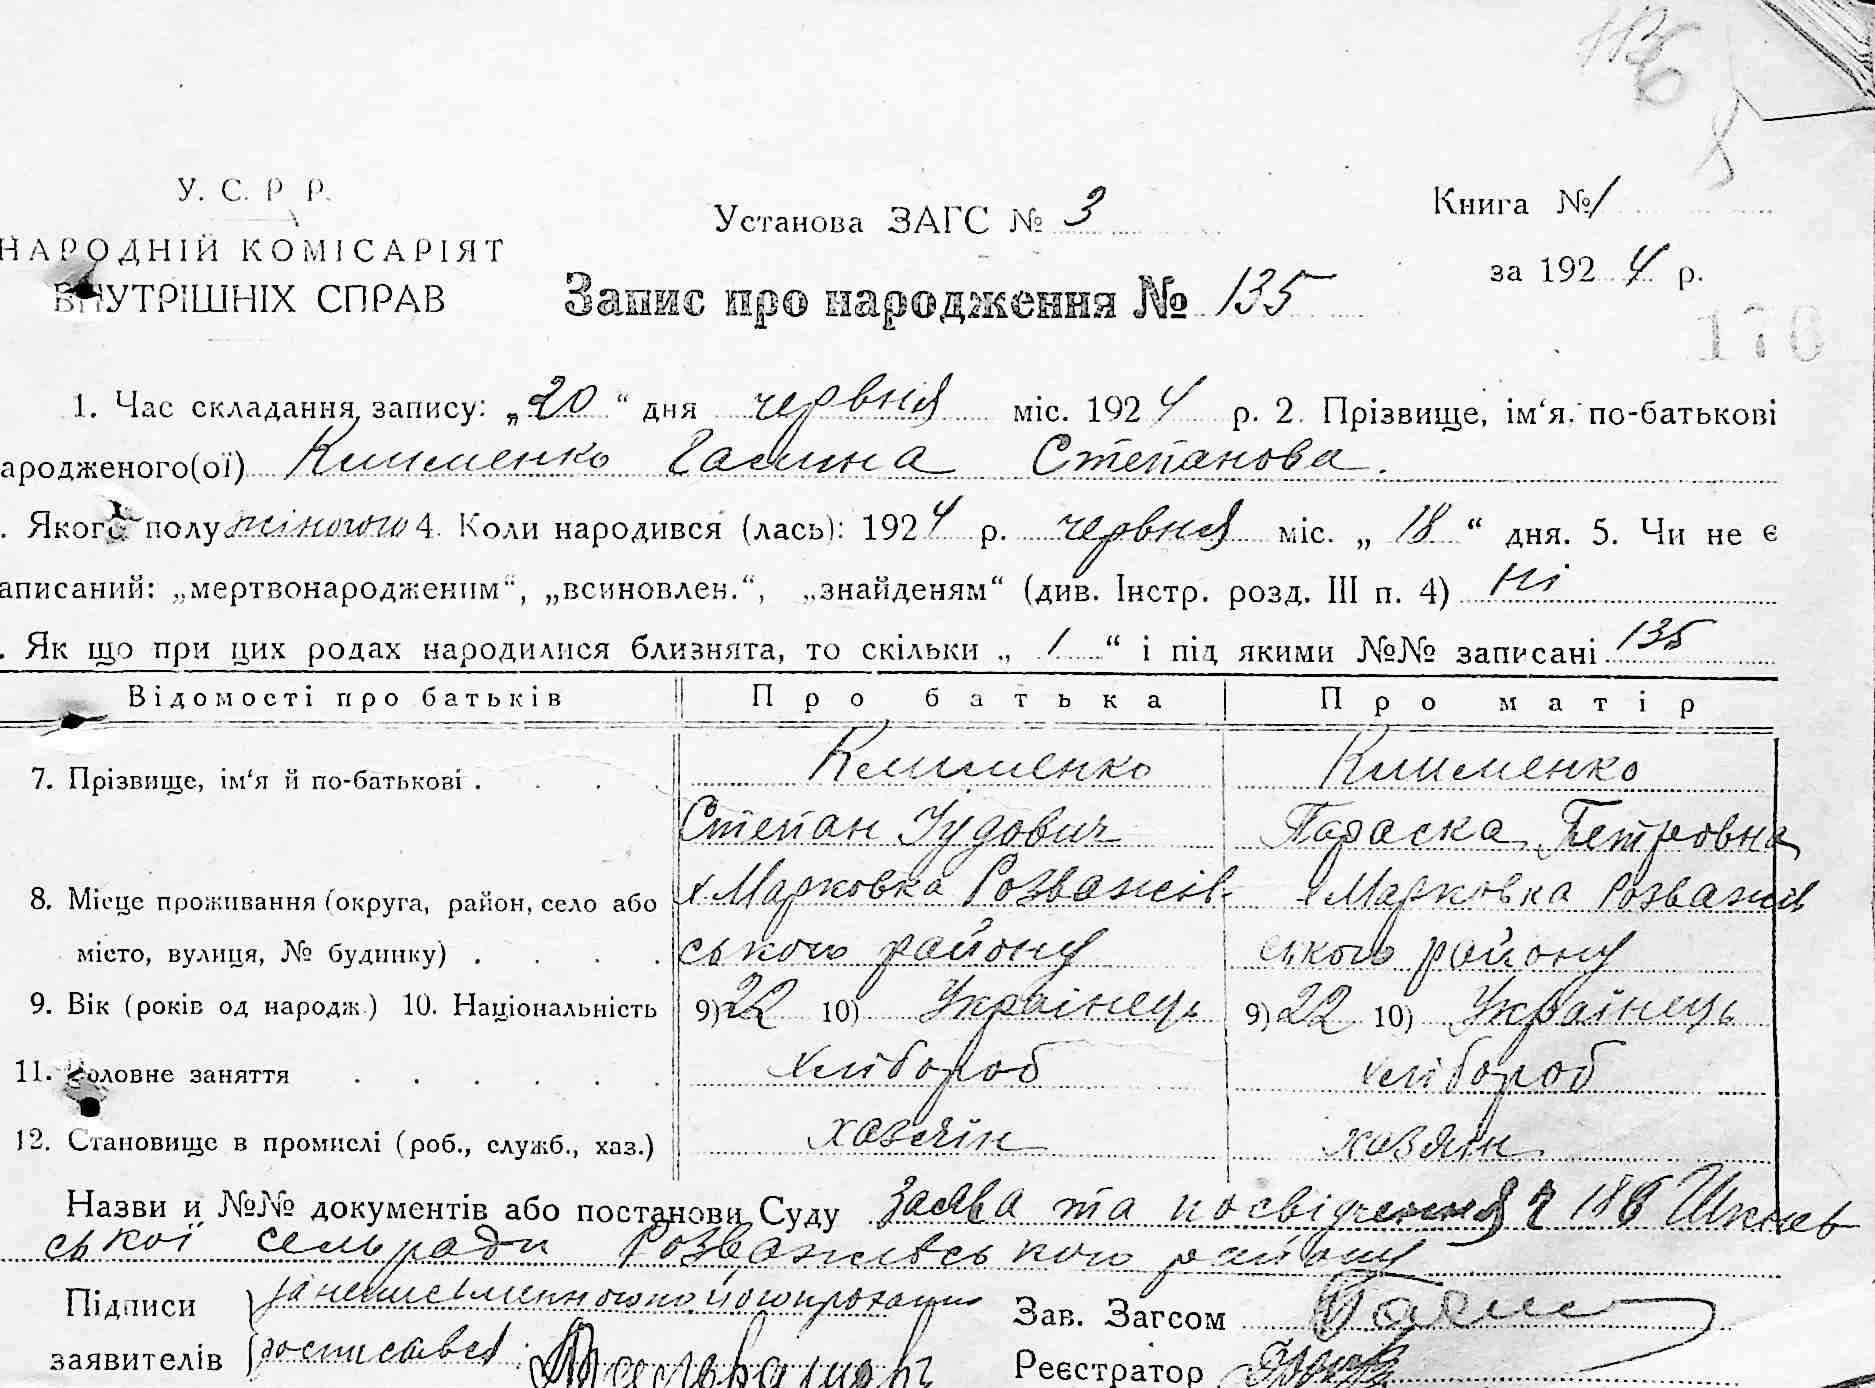 1136
8
У. С. Р Р.
НАРОДНІЙ КОМІСАРІЯТ
ВНУТРІШНІХ СПРАВ
Установа ЗАГС № 3
Книга № 1
за 1924 р.
Запис про народження № 135
176
1. Час складання запису: „20“ дня червня міс. 1924 р. 2. Прізвище, ім‘я, по-батькові
ародженого(ої) Клименко Галина Степанова.
. Якого полу жіночого 4. Коли народився (лась): 1924 р. червня міс. „18“ дня. 5. Чи не є
аписаний: „мертвонародженим“, „всиновлен.“, „знайденям“ (див. Інстр. розд. III п. 4) Ні
. Як що при цих родах народилися близнята, то скільки „1“ і під якими №№ записані 135
Відомості про батьків Про батька Про матір
7. Прізвище, ім‘я й по-батькові . . . . Клименко Клименко
Степан Іудович Параска Петровна
8. Місце проживання (округа, район, село або х Марковка Розважів- х Марковка Розважів
місто, вулиця, № будинку) . . . . ського району ського району
9. Вік (років од народж.) 10. Національність 9) 22 10) Українець 9) 22 10) Українець
11. Головне заняття . . . . . . хлібороб хлібороб
12. Становище в промислі (роб., служб., хаз.) хазяїн хазяін
Назви й №№ документів або постанови Суду Заява та посвідчення 186
ської сельради Розважівського району
Підписи за неписьменного
Зав. Загсом
заявителів росписався:
Реєстратор